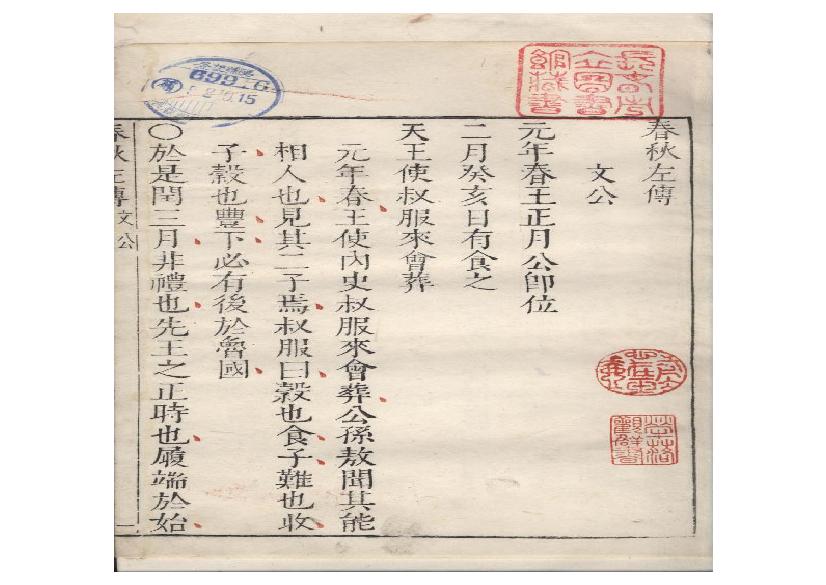 春秋左傳
文公
元年春王正月公即位
二月癸亥日有食之
天王使叔服來會葬
元年春王使內史叔服來會葬公孫敖聞其能
相人也見其二子焉叔服曰穀也食子難也收
子穀也豐下必有後於魯國
〇於是閏三月非禮也先王之正時也履端於始
春秋左傳 文公 一
699
2.6.15